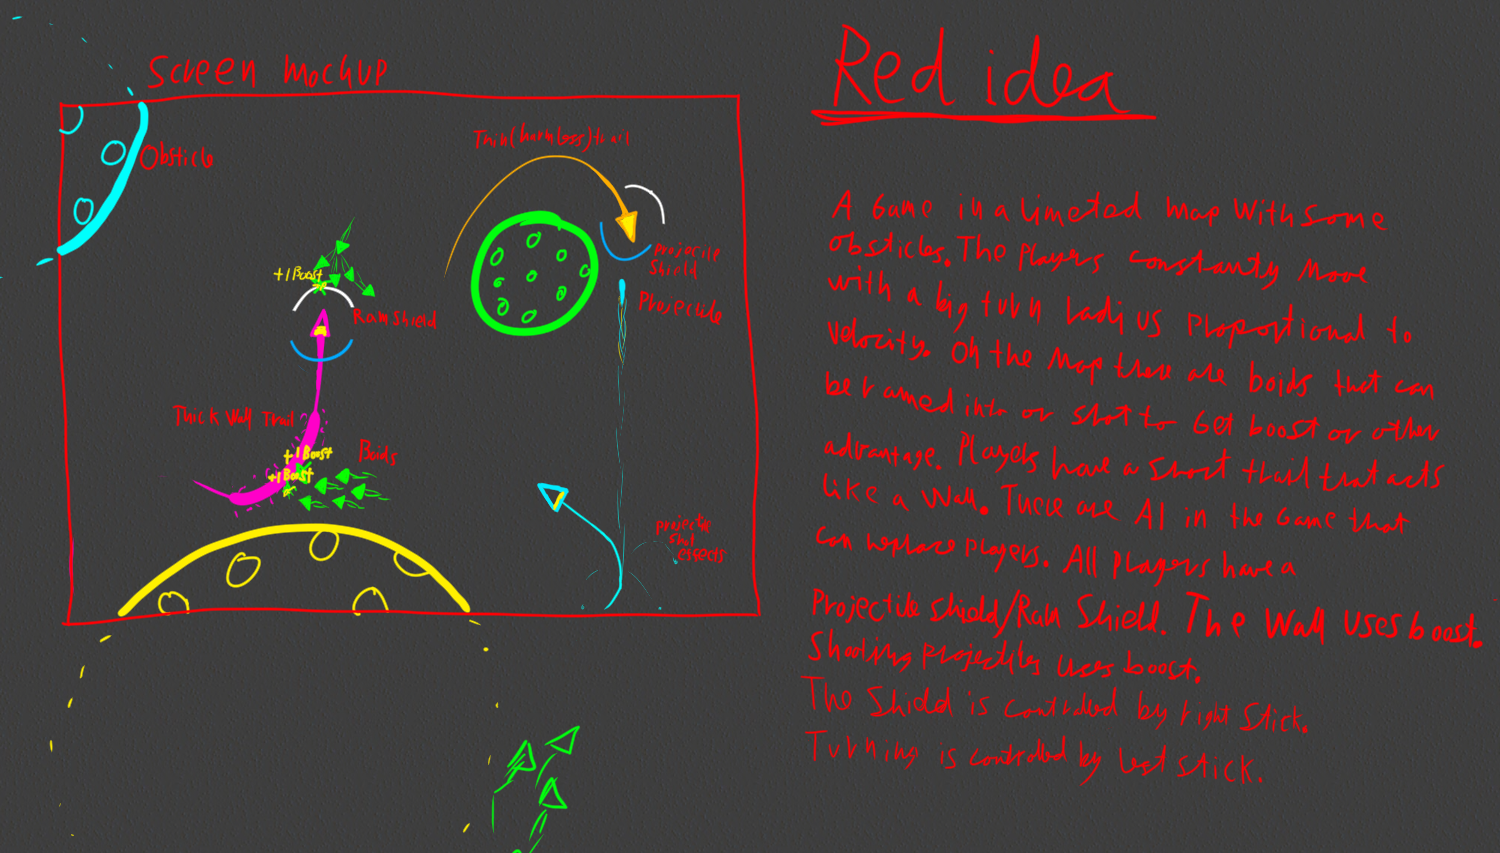 Screen mockup
Obsticle
Thin(harmless)trail
Projectile
Shield
Projectile
+1 Boost
Ram Shield
Thick Wall Trail
+1 Boost
+1 Boost
Boids
projectile
shot
effects
Red idea
A Game in a limeted map with some
obsticles. The players constanty move
with a big turn radius proportional to
velocity. On the map there are boids that can
be ramed into or shot to get boost or other
advantage. Players have a short trail that acts
like a wall. There are AI in the game that
can replace players. All players have a
Projectile shield/Ram Shield. The Wall uses boost.
Shooting projectiles uses boost.
The Shield is controlled by right stick.
Turning is controlled by left stick.